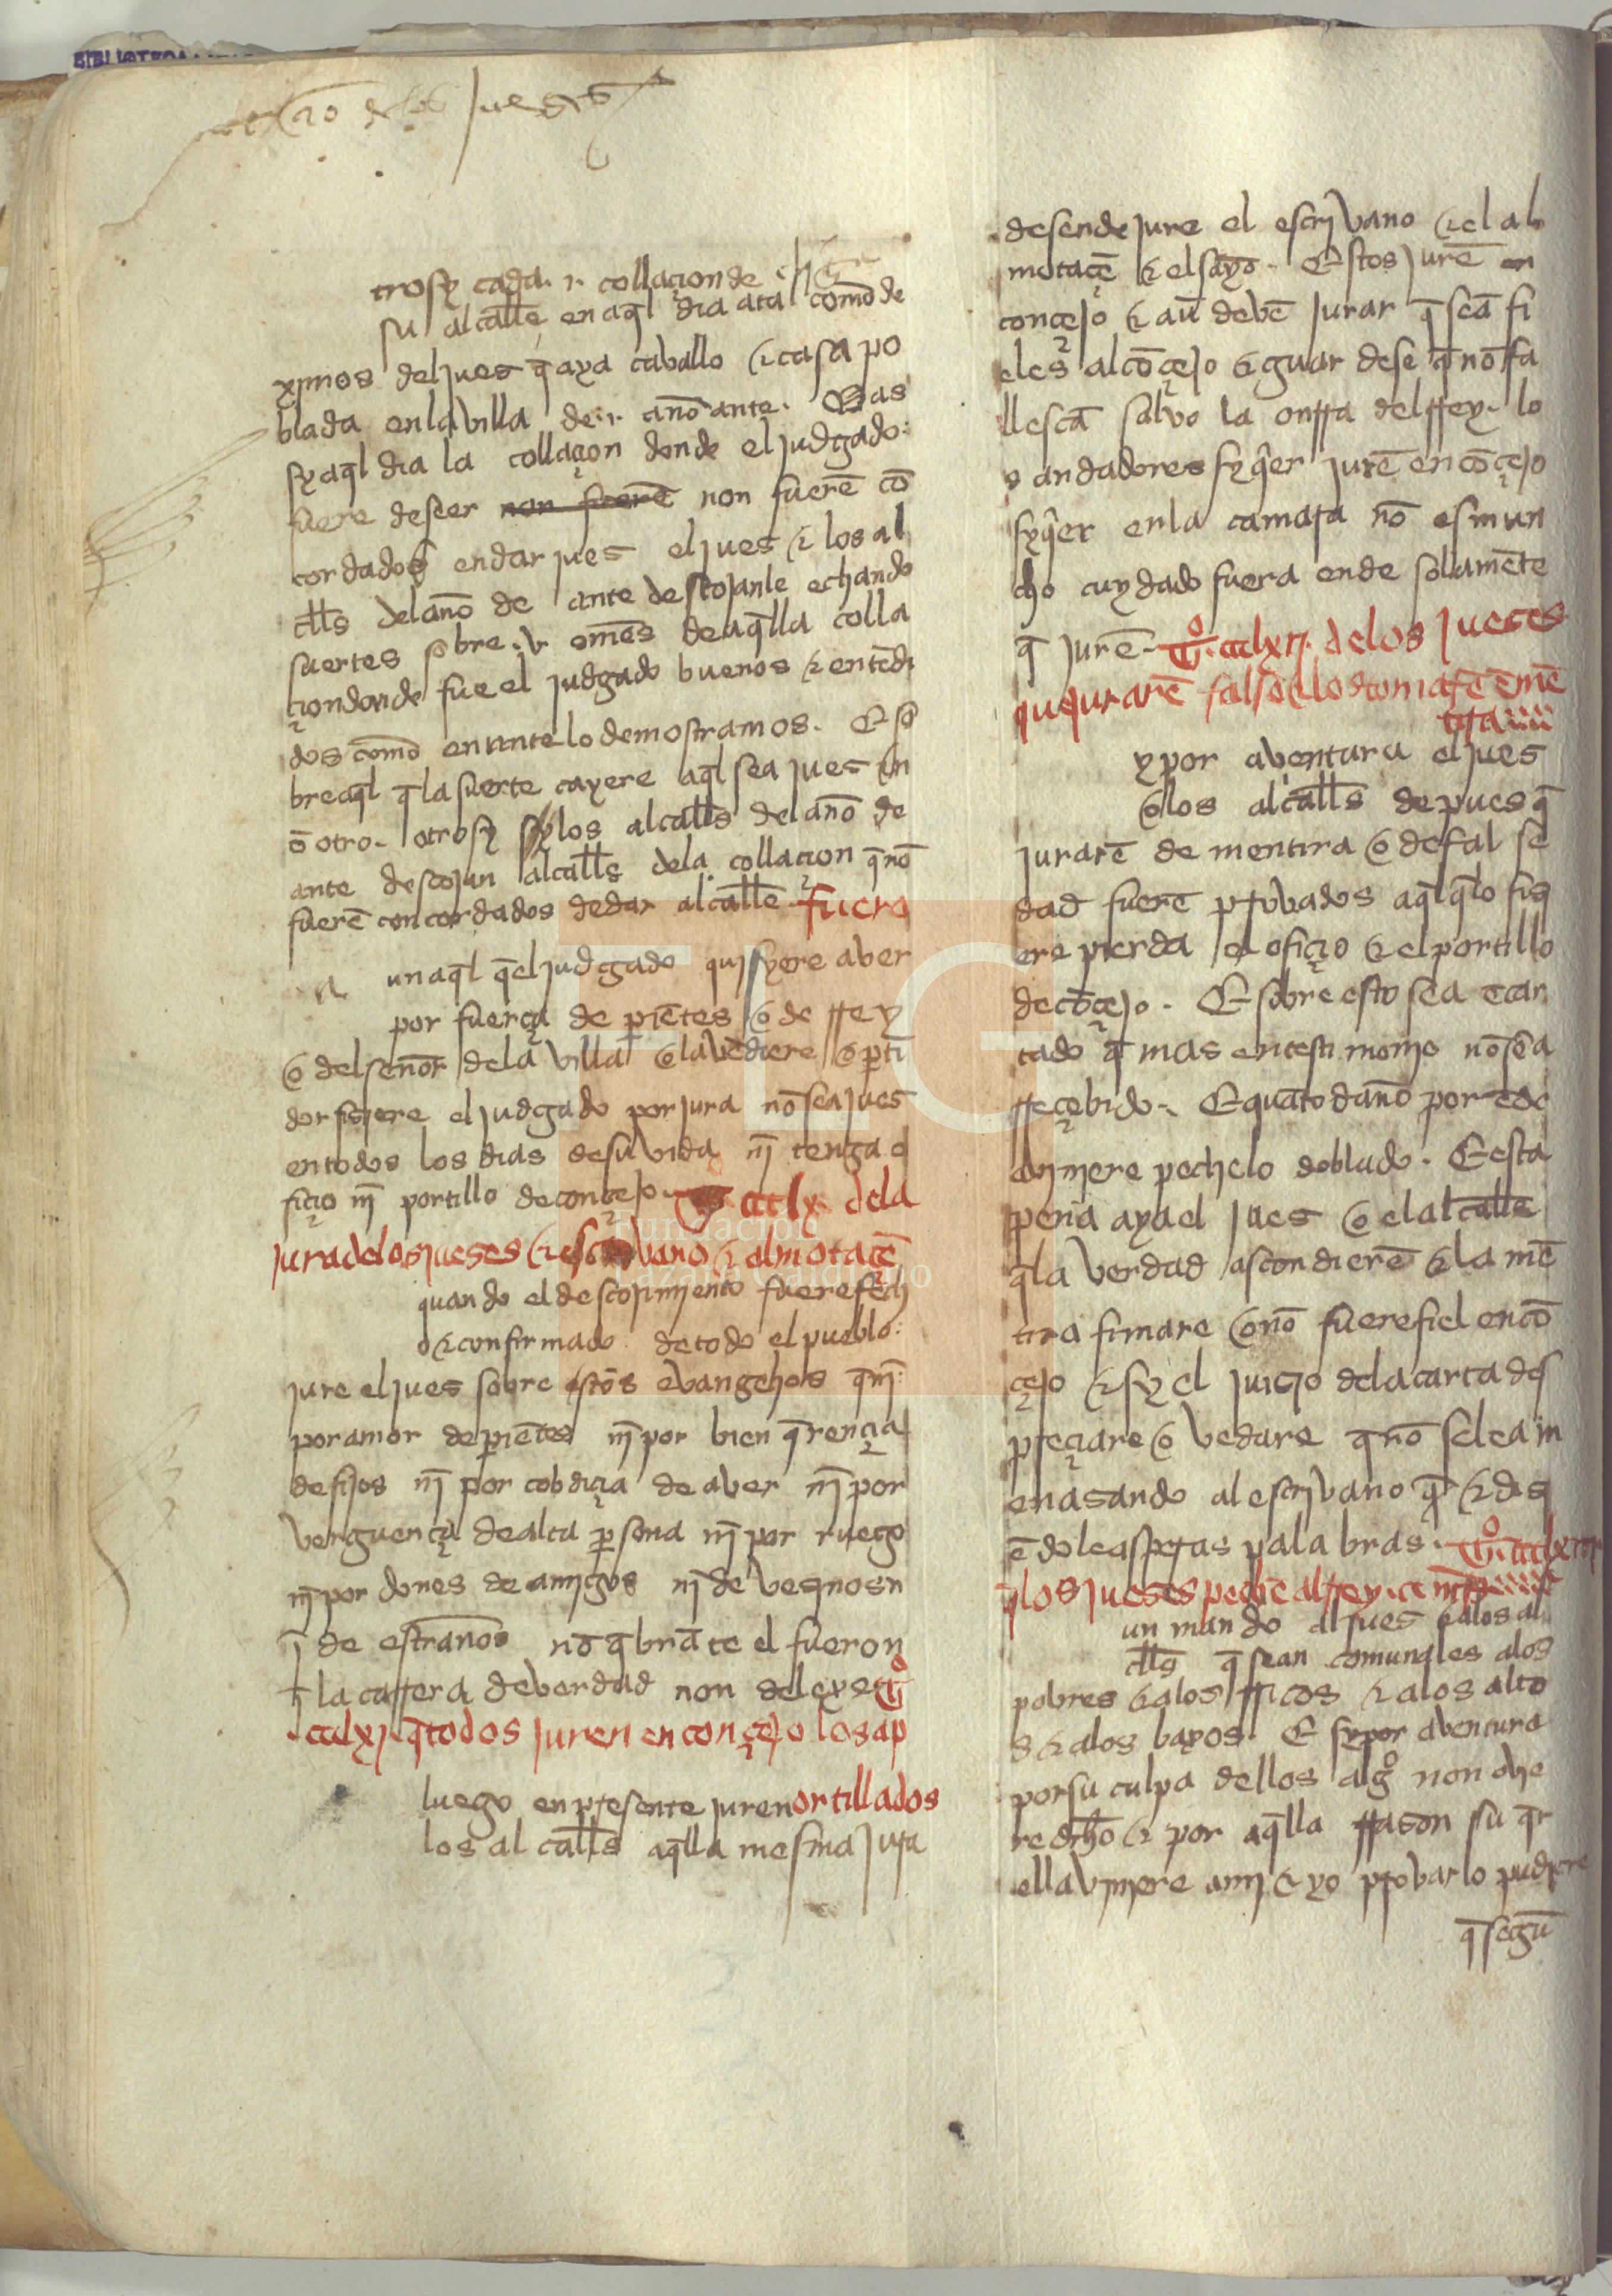 BIBLIOTECA
de los Jueses
trosy cada .i. collaçion de
su alcalle en aq̄l dia atal como de
xjmos del jues q̄ aya caballo & casa po
blada en la villa de .i. año ante. Mas
sy aq̄l dia la collaçion donde el judgado
fuere deseer non fuerē non fuerē cō
cordados en dar jues el jues & los al
clls̄ del año de ante descojanle echando
suertes sobre .v. omēs de aq̄lla colla
çion donde fue el judgado buenos & entēdi
dos como en ante lo demostramos. E so
bre aq̄l q̄ la suerte cayere aq̄l sea jues &n
ō otro. otrosy sy los alcalls̄ del año de
ante descojan alcalls̄ de la collaçion q̄ nō
fuerē concordados de dar alcalle fuero
un aq̄l q̄ el judgado quisyere aver
por fuerça de pīetes o de rrey
o del señor de la villa o la vēdiere o ptī
dor fisiere el judgado por jura nō sea jues
en todos los dias de su vida nj̄ tenga o
fiçio nj̄ portillo de conçejo. cclx. dela
jura delos jueses & escrivano & almotaçē
quando el descojimjento fuere fech
o & confirmado de todo el pueblo:
jure el jues sobre stōs evangelios q̄ nj̄
por amor de pīetes nj̄ por bien q̄rençia
de fijos nj̄ por cobdiçia de aver nj̄ por
verguença de alta p̄sona nj̄ por ruego
nj̄ por dones de amjgos nj̄ de vesjnos n
j̄ de estraños nō q̄brāte el fuero nj̄
la carrera de verdad non dexe Tº
.cclxj. q̄ todos juren en conçejo los ap
luego en presente juren ortillados
los alcalls̄ aq̄lla mesma jura
desende jure el escrivano & el al
motaçē & el sayō. Estos jurē en
conçejo & aū devē jurar q̄ seā fi
eles al cōçejo & guardese q̄ nō fa
llescā salvo la onrra del rrey. lo
s andadores syq̄er jurē en cōçejo
syq̄er en la camara nō es mun
cho cuydado fuera ende solamēte
q̄ jurē. Tº. cclxij. delos jueces
que jurarē falso & los tomarē en mē
tira
y por aventura el jues
o los alcalls̄ depues q̄
jurarē de mentira o de false
dad fuerē provados aq̄l q̄ lo fis
ere pierda el ofiçio & el portillo
de cōçejo. E sobre esto sea ēcar
tado q̄ mas en testimonjo nō sea
rreçebido. E quāto daño por ēde
avinjere pechelo doblado. E esta
pena aya el jues o el alcalle
q̄ la verdad ascondierē & la mē
tira firmare o nō fuere fiel en cō
çejo & sy el juiçio dela carta des
preçiare o vedare q̄ nō se lea m
enasando al escrivano q̄ & dis
ēdole asperas palabras. Tº. cclxiij
q̄ los jueses pechē al rrey
un mando al jues & alos al
clls̄ q̄ sean comunales alos
pobres & alos rricos & alos alto
s & alos bayos. E sy por aventura
por su culpa dellos algº non ovie
re drº & por aq̄lla rrason su q̄r
ella vinjere a mj & yo probarlo pudiere
q̄ segū